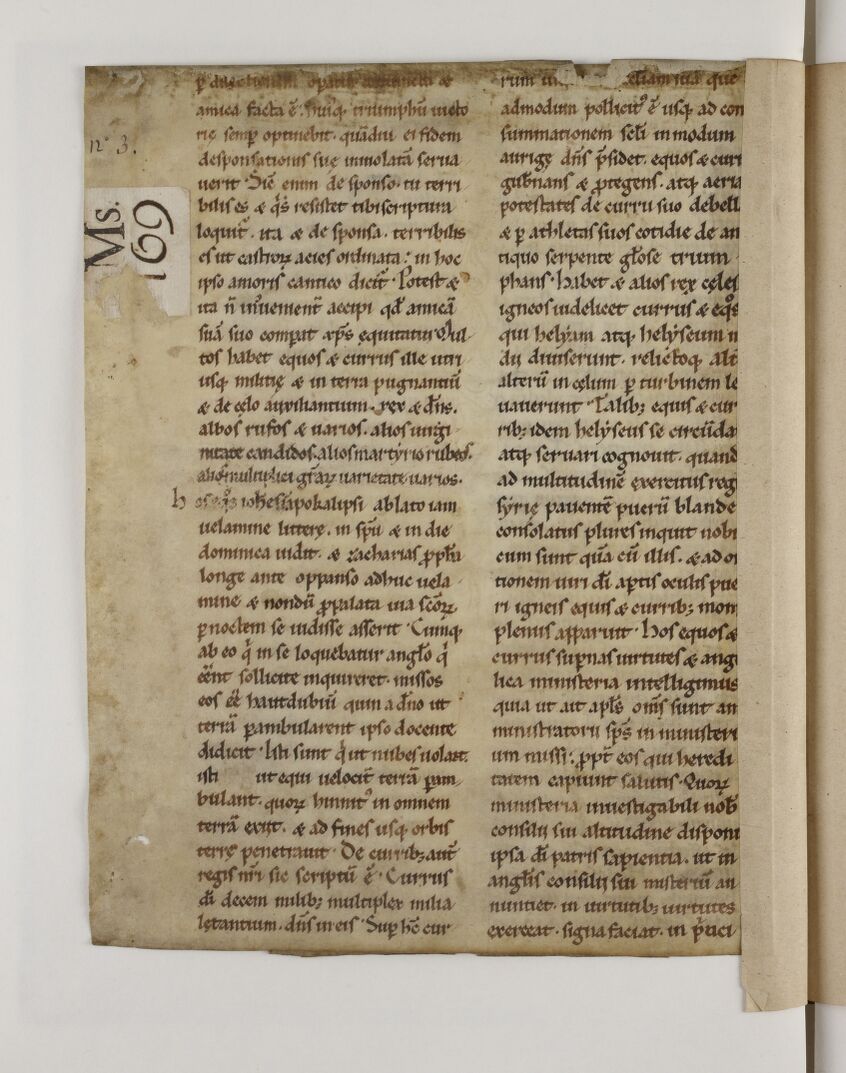 nº 3.
Ms.
169
amica facta ē. huiꝗ triumphū uicto
rię semꝑ optinebit. quādiu ei fidem
desponsationis suę inuiolatā serua
uerit. Sic̄ enim de sponso. tu terri
bilis es & q̇s resistet tibi scriptura
loquit᷑. ita & de sponsa. terribilis
es ut castroꝝ acies ordinata: in hoc
ipso amoris cantico dicit᷑. Potest &
ita ñ incōuenient᷑ accipi qd̄ amicā
suā suo comparat xp̄s equitatui. Mul
tos habet equos & currus ille utri
usꝗ militię & in terra pugnantiū
& de cęlo auxiliantium. rex & dn̄s.
albos rufos & uarios. alios uirgi
nitate candidos. alios martyrio rubeos.
alios multiplici gr̄aꝝ uarietate uarios.
hos eq̇s ioh̄es in apokalipsi ablato iam
uelamine litterę. in sp̄u & in die
dominica uidit. & zacharias ꝓph̄a
longe ante oppanso adhuc uela
mine & nondū ꝓpalata uia sc̄oꝝ
ꝑ noctem se uidisse asserit. Cumꝗ
ab eo q̇ in se loquebatur angl̄o q̇
ēent sollicite inquireret. missos
eos eē haut dubiū quin a dn̄o ut
terrā ꝑambularent ipso docente
didicit. Isti sunt q̇ ut nubes uolant.
isti ut equi uelocit᷑ terrā ꝑam
bulant. quoꝝ hinnitꝰ in omnem
terrā exiit. & ad fines usꝗ orbis
terrę penetrauit. De currib; aut̄
regis nr̄i sic scriptū ē. Currus
dī decem milib; multiplex milia
lętantium. dn̄s in eis. Suꝑ hēc cur
admodum pollicitꝰ ē usꝗ ad con
summationem sc̄li in modum
aurigę dn̄s p̄sidet. equos & curr
gub̄nans & ꝓtegens. atꝗ aeria
potestates de curru suo debell
& ꝑ athletas suos cotidie de an
tiquo serpente gl̄ose trium
phans. Habet & alios rex cęles
igneos uidelicet currus & eq̊s
qui helyam atꝗ helyseum
du diuiserunt. relictoꝗ alt
alterū in cęlum ꝑ turbinem le
uauerunt. Talib; equis & cur
rib; idem helyseus se circūda
atꝗ seruari cognouit. quand
ad multitudinē exercitus reg
syrię pauentē puerū blande
consolatus plures inquit nobi
cum sunt quā cū illis. & ad o
tionem uiri dī aptis oculis pue
ri igneis equis & currib; mon
plenus apparuit. Hos equos &
currus suꝑnas uirtutes & ang
lica ministeria intelligimus
quia ut ait apl̄s om̄s sunt am
ministratorii sp̄s in ministeri
um missi: ꝓpt᷑ eos qui heredi
tatem capiunt salutis. Quoꝝ
ministeria inuestigabili nob̄
consilii sui altitudine disponi
ipsa dī patris sapientia. ut in
angl̄is consilii sui misteriū an
nuntiet. in uirtutib; uirtutes
exerceat. signa faciat. in p̄nci